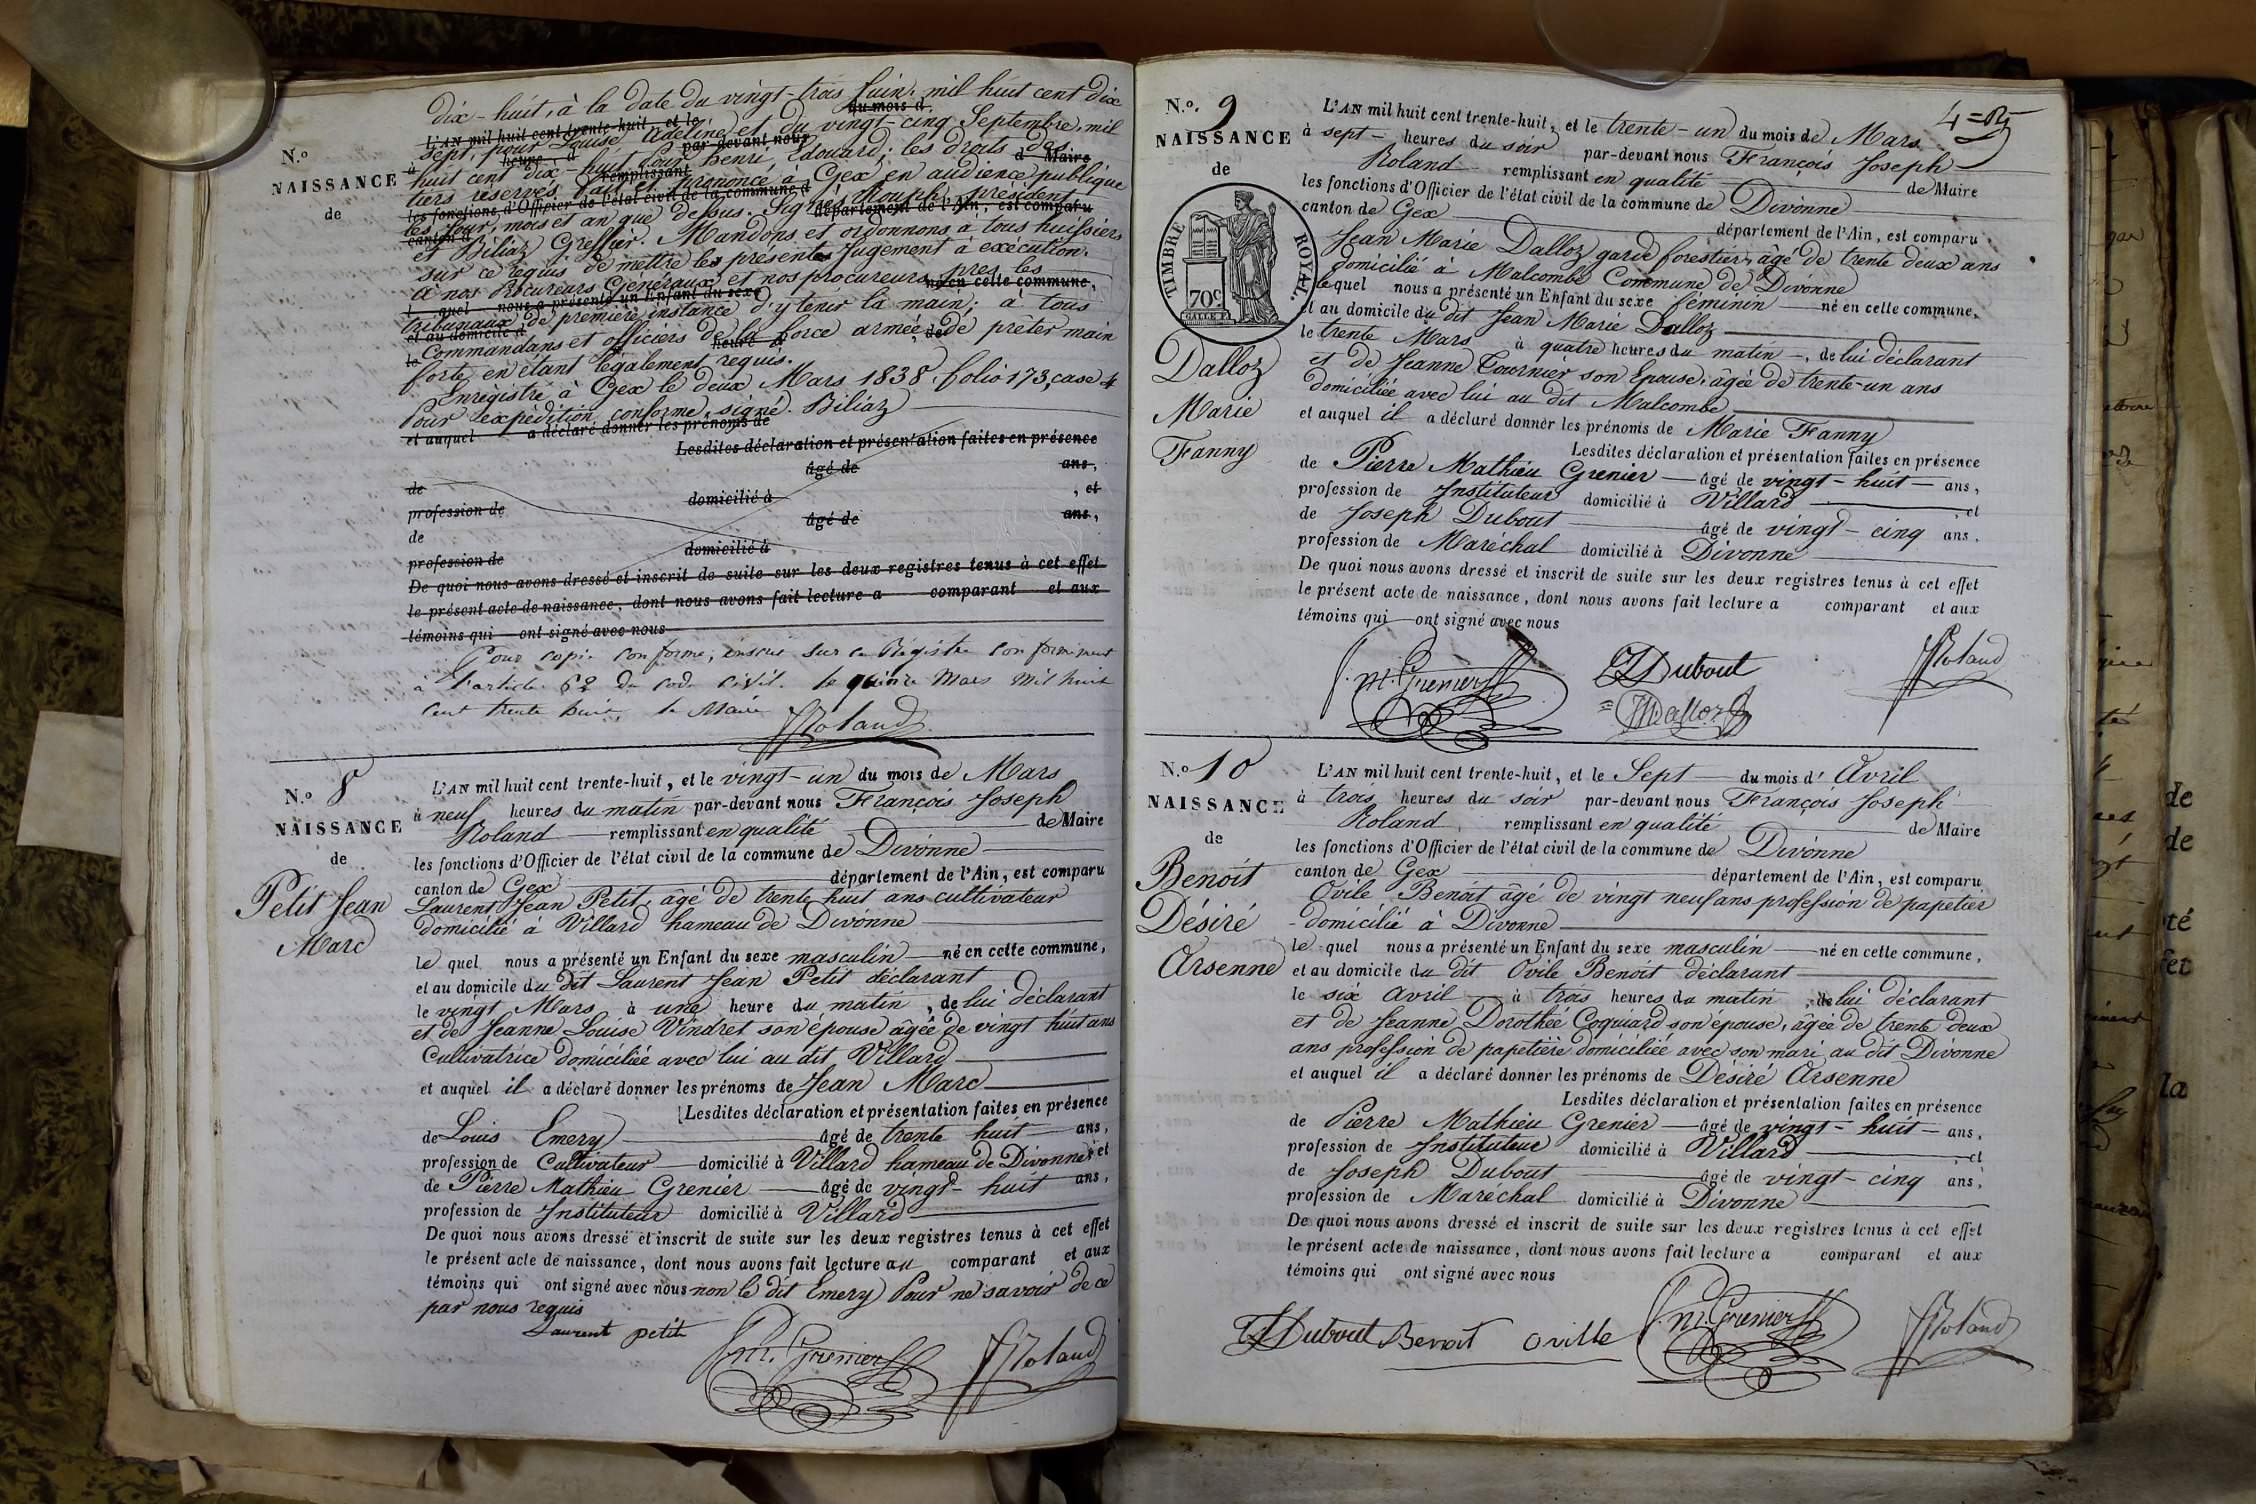 dix-huit, à la date du vingt-trois Juin, mil huit cent dix
sept, pour Louise, Adeline, et du vingt-cinq Septembre, mil
huit cent dix-huit pour Henri, Edouard; les droits des
tiers réservés. Fait et prononcé à Gex en audience publique
les jour, mois et an que dessus. Signés président
et Biliaz Greffier. Mandons et ordonnons à tous huissiers
sur ce requis de mettre les présentes Jugement à exécution.
à nos Procureurs Généraux et nos procureurs près les
tribunaux de première instance d'y tenir la main; à tous
Commandans et officiers de la force armée, de prêter main
forte en étant légalement requis.
Enregistré à Gex le deux Mars 1838, folio 173, case 4
Pour expédition conforme, signé. Biliaz
N.º
NAISSANCE
de
L'AN mil huit cent trente-huit, et le
du mois d
heure d
par-devant nous
remplissant
d Maire
les fonctions d'Officier de l'état civil de la commune d
canton d
département de l'Ain, est comparu
l quel nous a présenté un Enfant du sexe
né en cette commune,
et au domicile d
le
heure d
, de
et auquel a déclaré donner les prénoms de
Lesdites déclaration et présentation faites en présence
de âgé de ans,
profession de domicilié à , et
de âgé de ans,
profession de domicilié à
De quoi nous avons dressé et inscrit de suite sur les deux registres tenus à cet effet
le présent acte de naissance, dont nous avons fait lecture a comparant et aux
témoins qui ont signé avec nous
Pour copie conforme, inscrit sur ce Régistre conformément
à l'article 62 du code civil. le quinze Mars mil huit
cent trente huit, le Maire
Roland
N.º 8
NAISSANCE
de
Petit Jean
Marc
L'AN mil huit cent trente-huit, et le vingt-un du mois de Mars
à neuf heures du matin par-devant nous François Joseph
Roland remplissant en qualité de Maire
les fonctions d'Officier de l'état civil de la commune de Divonne
canton de Gex département de l'Ain, est comparu
Laurent Jean Petit, âgé de trente huit ans cultivateur
domicilié à Villard hameau de Divonne
le quel nous a présenté un Enfant du sexe masculin né en cette commune,
et au domicile du dit Laurent Jean Petit déclarant
le vingt Mars à une heure du matin, de lui déclarant
et de Jeanne Louise Vindret son épouse âgée de vingt huit ans
Cultivatrice domiciliée avec lui au dit Villard
et auquel il a déclaré donner les prénoms de Jean Marc
Lesdites déclaration et présentation faites en présence
de Louis Emery âgé de trente huit ans,
profession de Cultivateur domicilié à Villard hameau de Divonne, et
de Pierre Mathieu Grenier âgé de vingt-huit ans,
profession de Instituteur domicilié à Villard
De quoi nous avons dressé et inscrit de suite sur les deux registres tenus à cet effet
le présent acte de naissance, dont nous avons fait lecture au comparant et aux
témoins qui ont signé avec nous non le dit Emery Pour ne savoir de ce
par nous requis
Laurent petit
P. M. Grenier
Roland
4=
N.º 9
NAISSANCE
de
TIMBRE ROYAL.
70 c.
Dalloz
Marie
Fanny
L'AN mil huit cent trente-huit, et le trente-un du mois de Mars
à sept heures du soir par-devant nous François Joseph
Roland remplissant en qualité de Maire
les fonctions d'Officier de l'état civil de la commune de Divonne
canton de Gex département de l'Ain, est comparu
Jean Marie Dalloz garde forestier, âgé de trente deux ans
domicilié à Malcombe Commune de Divonne
lequel nous a présenté un Enfant du sexe féminin né en cette commune,
et au domicile du dit Jean Marie Dalloz
le trente Mars à quatre heures du matin, de lui déclarant
et de Jeanne Tournier son Epouse, âgée de trente-un ans
domiciliée avec lui au dit Malcombe
et auquel il a déclaré donner les prénoms de Marie Fanny
Lesdites déclaration et présentation faites en présence
de Pierre Mathieu Grenier âgé de vingt-huit ans,
profession de Instituteur domicilié à Villard et
de Joseph Dubout âgé de vingt-cinq ans.
profession de Maréchal domicilié à Divonne
De quoi nous avons dressé et inscrit de suite sur les deux registres tenus à cet effet
le présent acte de naissance, dont nous avons fait lecture a comparant et aux
témoins qui ont signé avec nous
P. M. Grenier
Dubout
Roland
JMDalloz
N.º 10
NAISSANCE
de
Benoit
Désiré
Arsenne
L'AN mil huit cent trente-huit, et le Sept du mois d'Avril
à trois heures du soir par-devant nous François Joseph
Roland, remplissant en qualité de Maire
les fonctions d'Officier de l'état civil de la commune de Divonne
canton de Gex département de l'Ain, est comparu
Ovile Benoit âgé de vingt neuf ans profession de papetier
domicilié à Divonne
le quel nous a présenté un Enfant du sexe masculin né en cette commune,
et au domicile du dit Ovile Benoit déclarant
le six Avril à trois heures du matin, de lui déclarant
et de Jeanne Dorothée Coquiard son épouse, âgée de trente deux
ans profession de papetière domiciliée avec son mari au dit Divonne
et auquel il a déclaré donner les prénoms de Désiré Arsenne
Lesdites déclaration et présentation faites en présence
de Pierre Mathieu Grenier âgé de vingt-huit ans,
profession de Instituteur domicilié à Villard et
de Joseph Dubout âgé de vingt-cinq ans,
profession de Maréchal domicilié à Divonne
De quoi nous avons dressé et inscrit de suite sur les deux registres tenus à cet effet
le présent acte de naissance, dont nous avons fait lecture a comparant et aux
témoins qui ont signé avec nous
Dubout Benoit Oville P. M. Grenier Roland